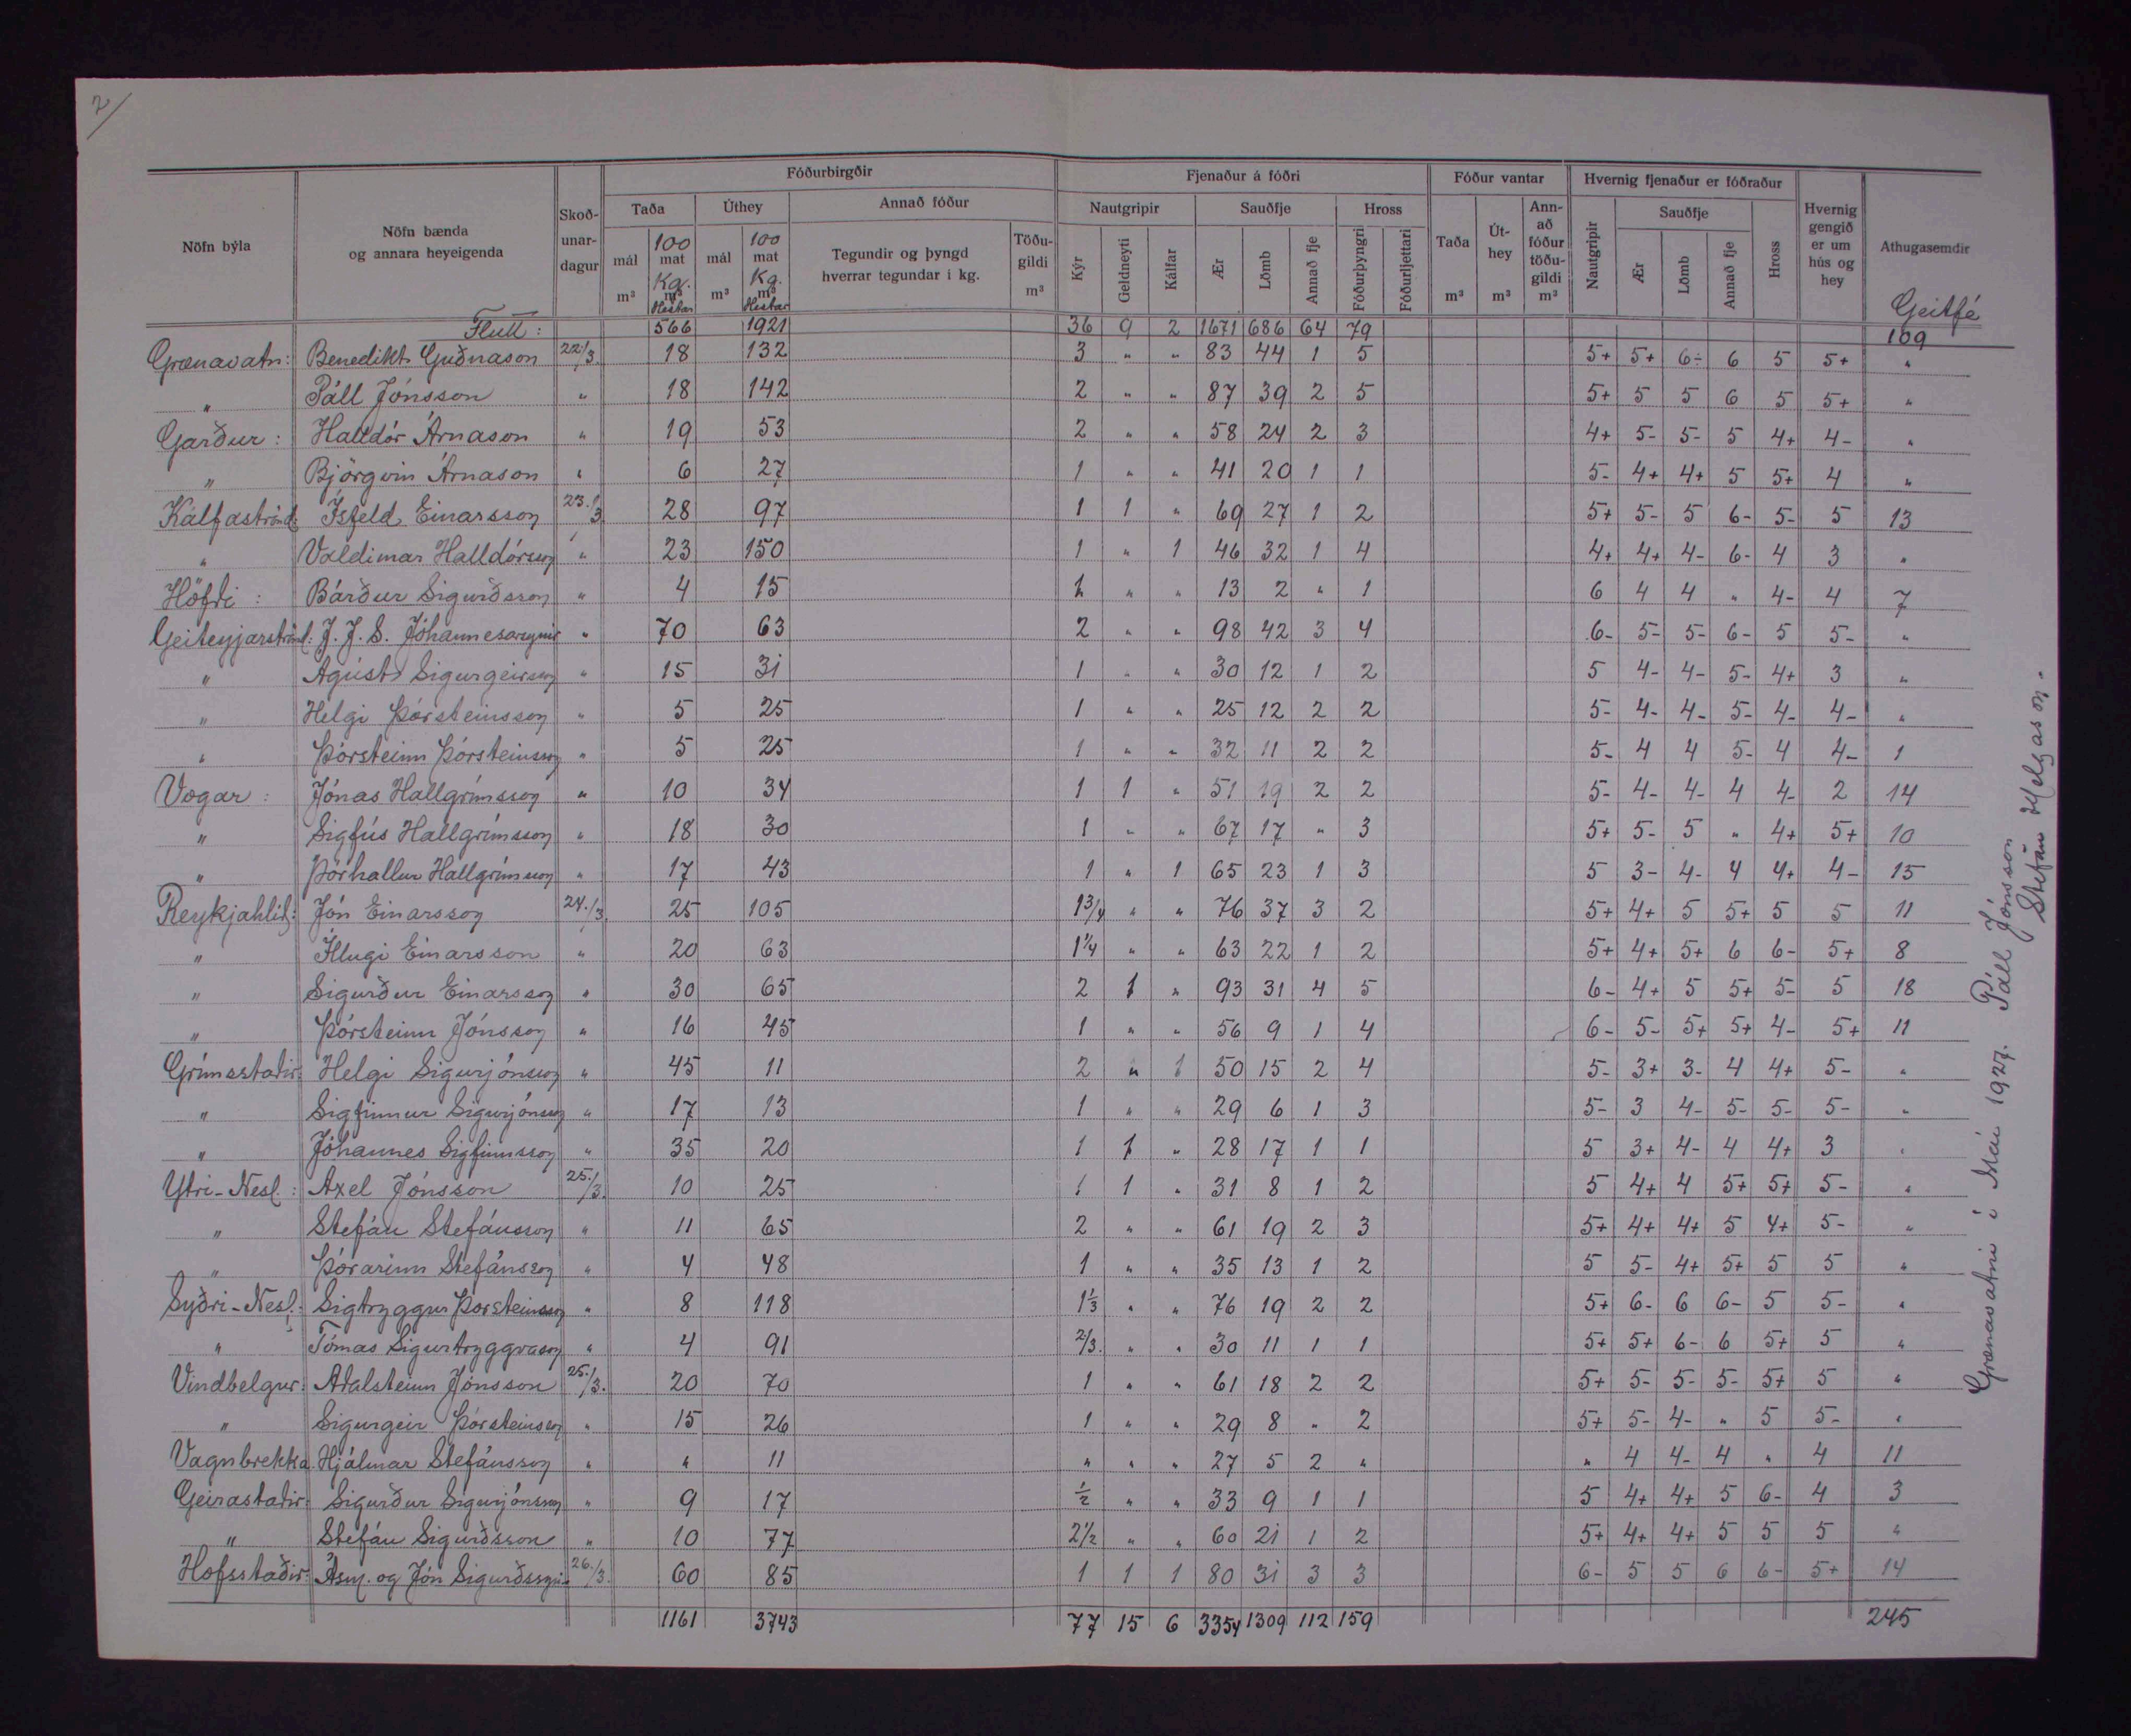 2/
Nöfn býla | Nöfn bænda og annara heyeigenda | Skoð-unar-dagur | Fóðurbirgðir | Fjenaður á fóðri | Fóður vantar | Hvernig fjenaður er fóðraður | Hvernig gengið er um hús og hey | Athugasemdir
Taða | Úthey | Annað fóður | Nautgripir | Sauðfje | Hross | Taða m³ | Út-hey m³ | Ann-að fóður töðu-gildi m³ | Nautgripir | Sauðfje | Hross
mál m³ | 100 mat Kg. m³ Hestar | mál m³ | 100 mat Kg. m³ Hestar | Tegundir og þyngd hverrar tegundar í kg. | Töðu-gildi m³ | Kýr | Geldneyti | Kálfar | Ær | Lömb | Annað fje | Fóðurþyngri | Fóðurljettari | Ær | Lömb | Annað fje | Geitfé
Flutt: 566 1921 36 9 2 1671 686 64 79 109
Grænavatn: Benedikt Guðnason 22/3 18 132 3 " " 83 44 1 5 5+ 5+ 6÷ 6 5 5+ "
" Páll Jónsson " 18 142 2 " " 87 39 2 5 5+ 5 5 6 5 5+ "
Garður: Halldór Árnason " 19 53 2 " " 58 24 2 3 4+ 5- 5- 5 4+ 4- "
" Björgvin Árnason " 6 27 1 " " 41 20 1 1 5- 4+ 4+ 5 5+ 4 "
Kálfaströnd: Ísfeld Einarsson 23./3 28 97 1 1 " 69 27 1 2 5+ 5- 5 6- 5- 5 13
" Valdimar Halldórsson " 23 150 1 " 1 46 32 1 4 4+ 4+ 4- 6- 4 3 "
Höfði: Bárður Sigurðsson " 4 15 " " 13 2 " 1 6 4 4 " 4- 4 7
Geiteyjarströnd: J. J. S. Jóhannessynir " 70 63 2 " " 98 42 3 4 6- 5- 5- 6- 5 5- "
" Ágúst Sigurgeirsson " 15 31 1 " " 30 12 1 2 5 4- 4- 5- 4+ 3 "
" Helgi Þórsteinsson " 5 25 1 " " 25 12 2 2 5- 4- 4- 5- 4- 4- "
" Þórsteinn Þórsteinsson " 5 25 1 " " 32 11 2 2 5- 4 4 5- 4 4- 1
Vogar: Jónas Hallgrímsson " 10 34 1 1 " 51 19 2 2 5- 4- 4- 4 4- 2 14
" Sigfús Hallgrímsson " 18 30 1 " " 67 17 " 3 5+ 5- 5 " 4+ 5+ 10
" Þórhallur Hallgrímsson " 17 43 1 " 1 65 23 1 3 5 3- 4- 4 4+ 4- 15
Reykjahlíð: Jón Einarsson 24./3 25 105 1 3/4 " " 76 37 3 2 5+ 4+ 5 5+ 5 5 11
" Illugi Einarsson " 20 63 1 1/4 " " 63 22 1 2 5+ 4+ 5+ 6 6- 5+ 8
" Sigurður Einarsson " 30 65 2 1 " 93 31 4 5 6- 4+ 5 5+ 5- 5 18
" Þórsteinn Jónsson " 16 45 1 " " 56 9 1 4 6- 5- 5+ 5+ 4- 5+ 11
Grímsstaðir: Helgi Sigurjónsson " 45 11 2 " 1 50 15 2 4 5- 3+ 3- 4 4+ 5- "
" Sigfinnur Sigurjónsson " 17 13 1 " " 29 6 1 3 5- 3 4- 5- 5- 5- "
" Jóhannes Sigfinnsson " 35 20 1 1 " 28 17 1 1 5 3+ 4- 4 4+ 3 "
Ytri-Nesl.: Axel Jónsson 25./3. 10 25 1 1 " 31 8 1 2 5 4+ 4 5+ 5+ 5- "
" Stefán Stefánsson " 11 65 2 " " 61 19 2 3 5+ 4+ 4+ 5 4+ 5- "
" Þórarinn Stefánsson " 4 48 1 " " 35 13 1 2 5 5- 4+ 5+ 5 5 "
Syðri-Nesl.: Sigtryggur Þorsteinsson " 8 118 1 1/3 " " 76 19 2 2 5+ 6- 6 6- 5 5- "
" Tómas Sigurtryggvason " 4 91 2/3. " " 30 11 1 1 5+ 5+ 6- 6 5+ 5 "
Vindbelgur: Aðalsteinn Jónsson 25./3. 20 70 1 " " 61 18 2 2 5+ 5- 5- 5- 5+ 5 "
" Sigurgeir Þórsteinsson " 15 26 1 " " 29 8 " 2 5+ 5- 4- " 5 5- "
Vagnbrekka. Hjálmar Stefánsson " " 11 " " " 27 5 2 " " 4 4- 4 " 4 11
Geirastaðir: Sigurður Sigurjónsson " 9 17 1/2 " " 33 9 1 1 5 4+ 4+ 5 6- 4 3
" Stefán Sigurðsson " 10 77 2 1/2 " " 60 21 1 2 5+ 4+ 4+ 5 5 5 "
Hofsstaðir: Ásm. og Jón Sigurðssynir 26./3. 60 85 1 1 1 80 31 3 3 6- 5 5 6 6- 5+ 14
1161 3743 77 15 6 3354 1309 112 159 245
Grænavatni í Maí 1927. Páll Jónsson
Stefán Helgason.